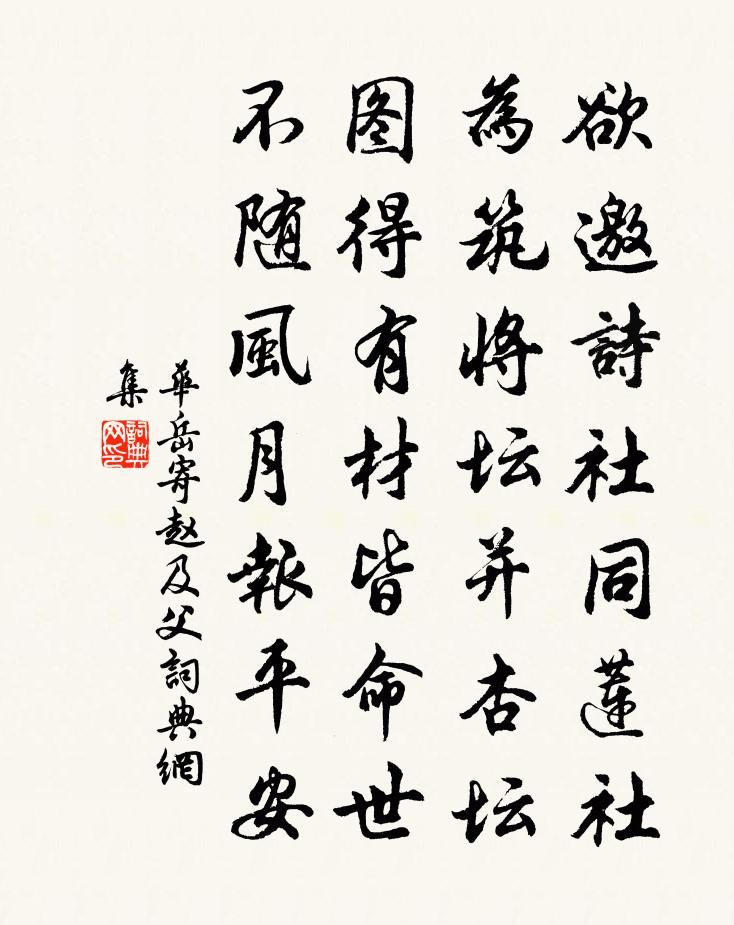 欲邀詩社同蓮社
為筑將坛并杏坛
图得有材皆命世
不随風月報平安
華岳寄赵及父詞典網
集
詞典
网印